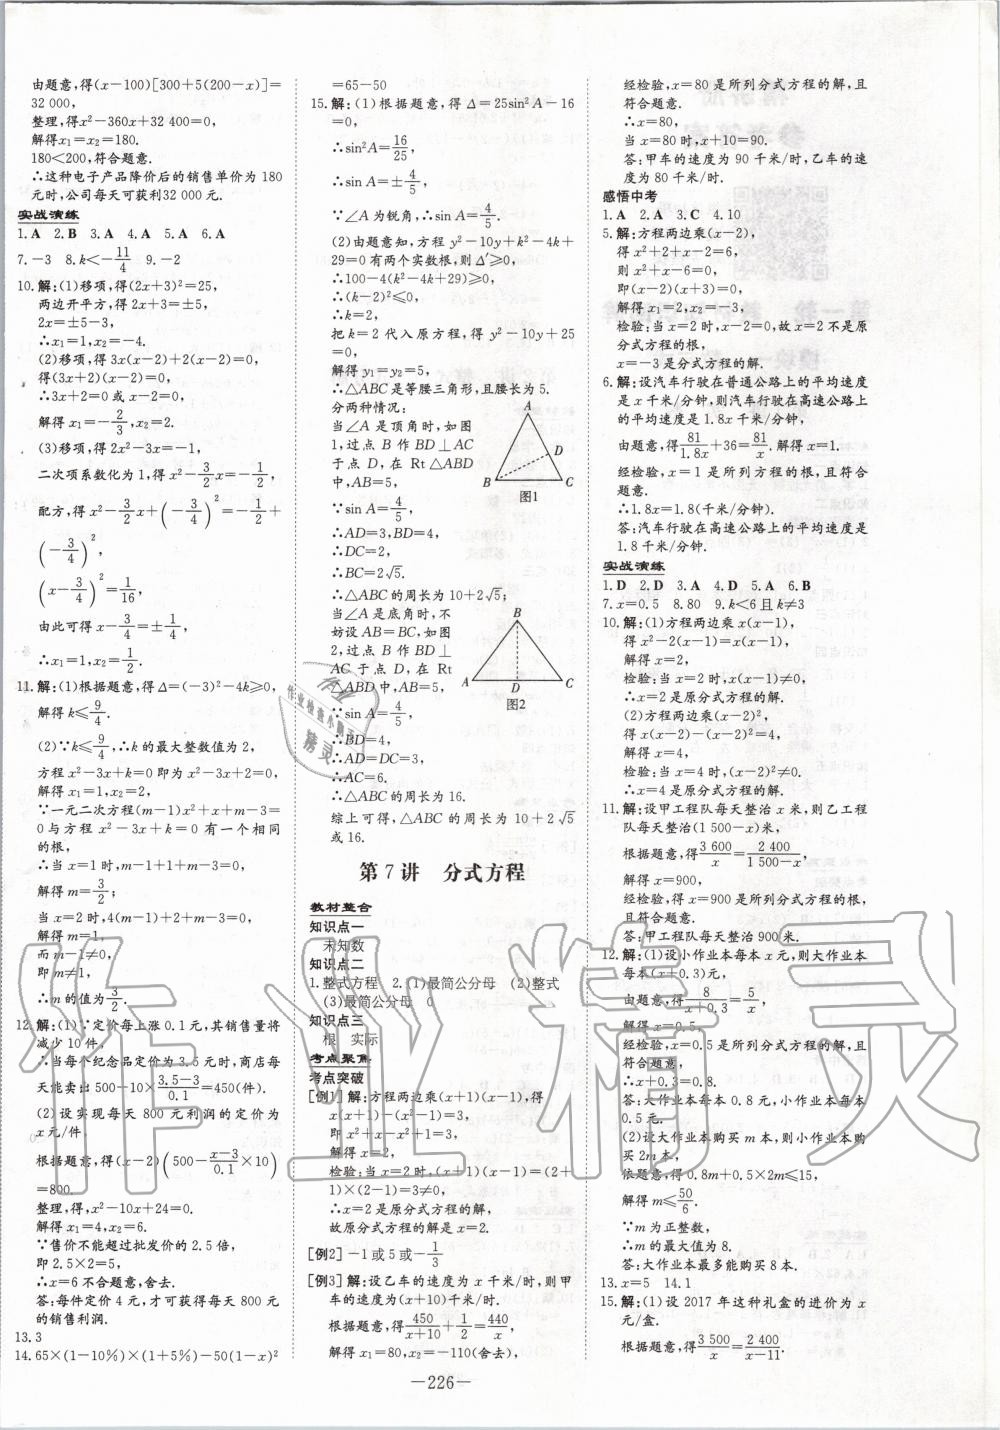 由题意,得(x-100)[300+5(200-x)]=
32 000,
整理,得x²-360x+32 400=0,
解得x₁=x₂=180.
180<200,符合题意.
∴这种电子产品降价后的销售单价为 180
元时,公司每天可获利32 000 元.
实战演练
1.A 2.B 3.A 4.A 5.A 6.A
7.-3 8.k<-11/4 9.-2
10.解:(1)移项,得(2x+3)²=25,
两边开平方,得2x+3=±5,
2x=±5-3,
∴x₁=1,x₂=-4.
(2)移项,得 3x(x-2)+2(x-2)=0,
得(3x+2)(x-2)=0,
∴3x+2=0或x-2=0,
解得 x₁=-2/3,x₂=2.
(3)移项,得 2x²-3x=-1,
二次项系数化为 1,得x²-3/2x=-1/2,
配方,得 x²-3/2x+(-3/4)²=-1/2+
(-3/4)²,
(x-3/4)²=1/16,
由此可得 x-3/4=±1/4,
∴x₁=1,x₂=1/2.
11.解:(1)根据题意,得Δ=(-3)²-4k≥0,
解得k≤9/4.
(2)∵k≤9/4,∴k 的最大整数值为 2,
方程x²-3x+k=0即为x²-3x+2=0,
解得x₁=1,x₂=2,
∵一元二次方程(m-1)x²+x+m-3=
0与方程 x²-3x+k=0 有一个相同
的根,
∴当 x=1时,m-1+1+m-3=0,
解得m=3/2;
当x=2时,4(m-1)+2+m-3=0,
解得m=1,
而 m-1≠0,
即 m≠1,
∴m 的值为3/2.
12.解:(1)∵定价每上涨 0.1 元,其销售量将
减少 10 件,
∴当每个纪念品定价为 3.5 元时,商店每
天能卖出 500-10×(3.5-3)/0.1=450(件).
(2)设实现每天 800 元利润的定价为
x元/件,
根据题意,得(x-2)(500-(x-3)/0.1×10)
=800.
整理,得x²-10x+24=0.
解得x₁=4,x₂=6.
∵售价不能超过批发价的 2.5 倍,
即 2.5×2=5,
∴x=6不合题意,舍去.
答:每件定价 4 元,才可获得每天 800 元
的销售利润.
13.3
14.65×(1-10%)×(1+5%)-50(1-x)²
=65-50
15.解:(1)根据题意,得 Δ=25sin²A-16
=0,
∴sin²A=16/25,
∴sin A=±4/5,
∵∠A为锐角,∴sin A=4/5.
(2)由题意知,方程 y²-10y+k²-4k+
29=0有两个实数根,则Δ′≥0,
∴100-4(k²-4k+29)≥0,
∴(k-2)²≤0,
∴k=2,
把 k=2 代入原方程,得 y²-10y+25
=0,
解得y₁=y₂=5,
∴△ABC是等腰三角形,且腰长为 5.
分两种情况:
当∠A 是顶角时,如图
1,过点 B 作 BD⊥AC
于点 D,在 Rt△ABD
中,AB=5,
∵sin A=4/5,
∴AD=3,BD=4,
∴DC=2,
∴BC=2√5.
∴△ABC 的周长为 10+2√5;
当∠A 是底角时,不
妨设 AB=BC,如图
2,过点 B 作 BD⊥
AC于点 D,在 Rt
△ABD中,AB=5,
∵sin A=4/5,
∴BD=4,
∴AD=DC=3,
∴AC=6.
∴△ABC 的周长为 16.
综上可得,△ABC 的周长为 10+2√5
或 16.
A
D
B
C
图1
B
A
D
C
图2
第 7 讲 分式方程
教材整合
知识点一
未知数
知识点二
1.整式方程 2.(1)最简公分母 (2)整式
(3)最简公分母 0
知识点三
根 实际
考点聚焦
考点突破
[例1] 解:方程两边乘(x+1)(x-1),得
x(x+1)-(x²-1)=3,
即 x²+x-x²+1=3,
解得 x=2,
检验:当 x=2 时,(x+1)(x-1)=(2+
1)×(2-1)=3≠0,
∴x=2是原方程的解,
故原分式方程的解是x=2.
[例2] -1或5或-1/3
[例3] 解:设乙车的速度为 x 千米/时,则甲
车的速度为(x+10)千米/时.
根据题意,得450/(x+10)+1/2=440/x,
解得 x₁=80,x₂=-110(舍去),
经检验,x=80 是所列分式方程的解,且
符合题意.
∴x=80,
当 x=80时,x+10=90.
答:甲车的速度为 90 千米/时,乙车的速
度为 80千米/时.
感悟中考
1.A 2.A 3.C 4.10
5.解:方程两边乘(x-2),
得 x²+2+x-2=6,
则 x²+x-6=0,
即(x-2)(x+3)=0,
解得x₁=2,x₂=-3,
检验:当 x=2时,x-2=0,故x=2不是原
分式方程的根,
x=-3是分式方程的解.
6.解:设汽车行驶在普通公路上的平均速度
是 x 千米/分钟,则汽车行驶在高速公路上
的平均速度是 1.8x 千米/分钟,
由题意,得81/1.8x+36=81/x.解得x=1.
经检验,x=1 是所列方程的根,且符合
题意.
∴1.8x=1.8(千米/分钟).
答:汽车行驶在高速公路上的平均速度是
1.8 千米/分钟.
实战演练
1.D 2.D 3.A 4.D 5.A 6.B
7.x=0.5 8.80 9.k<6且k≠3
10.解:(1)方程两边乘 x(x-1),
得 x²-2(x-1)=x(x-1),
解得x=2,
检验:当x=2时,x(x-1)≠0,
∴x=2是原分式方程的解.
(2)方程两边乘(x-2)²,
得 x(x-2)-(x-2)²=4,
解得x=4,
检验:当 x=4时,(x-2)²≠0.
∴x=4是原分式方程的解.
11.解:设甲工程队每天整治 x 米,则乙工程
队每天整治(1 500-x)米,
根据题意,得3 600/x=2 400/(1 500-x),
解得x=900,
经检验,得x=900是所列分式方程的解,
且符合题意.
答:甲工程队每天整治 900米.
12.解:(1)设小作业本每本 x 元,则大作业本
每本(x+0.3)元,
由题意,得8/(x+0.3)=5/x,
解得 x=0.5,
经检验,x=0.5 是所列分式方程的解,且
符合题意,
∴x+0.3=0.8.
答:大作业本每本 0.8 元,小作业本每本
0.5元.
(2)设大作业本购买 m 本,则小作业本购
买2m本,
依题意,得 0.8m+0.5×2m≤15,
解得m≤50/6.
∵m 为正整数,
∴m 的最大值为 8.
答:大作业本最多能购买8本.
13.x=5 14.1
15.解:(1)设 2017 年这种礼盒的进价为 x
元/盒.
根据题意,得3 500/x=2 400/(x-11).
—226—
作业精灵